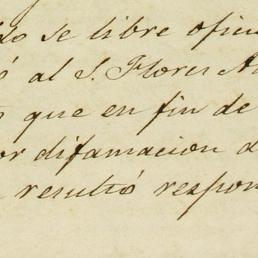 do se libre ofici
ó al S. Flores
que en fin de
or difamacion d
resultó respon